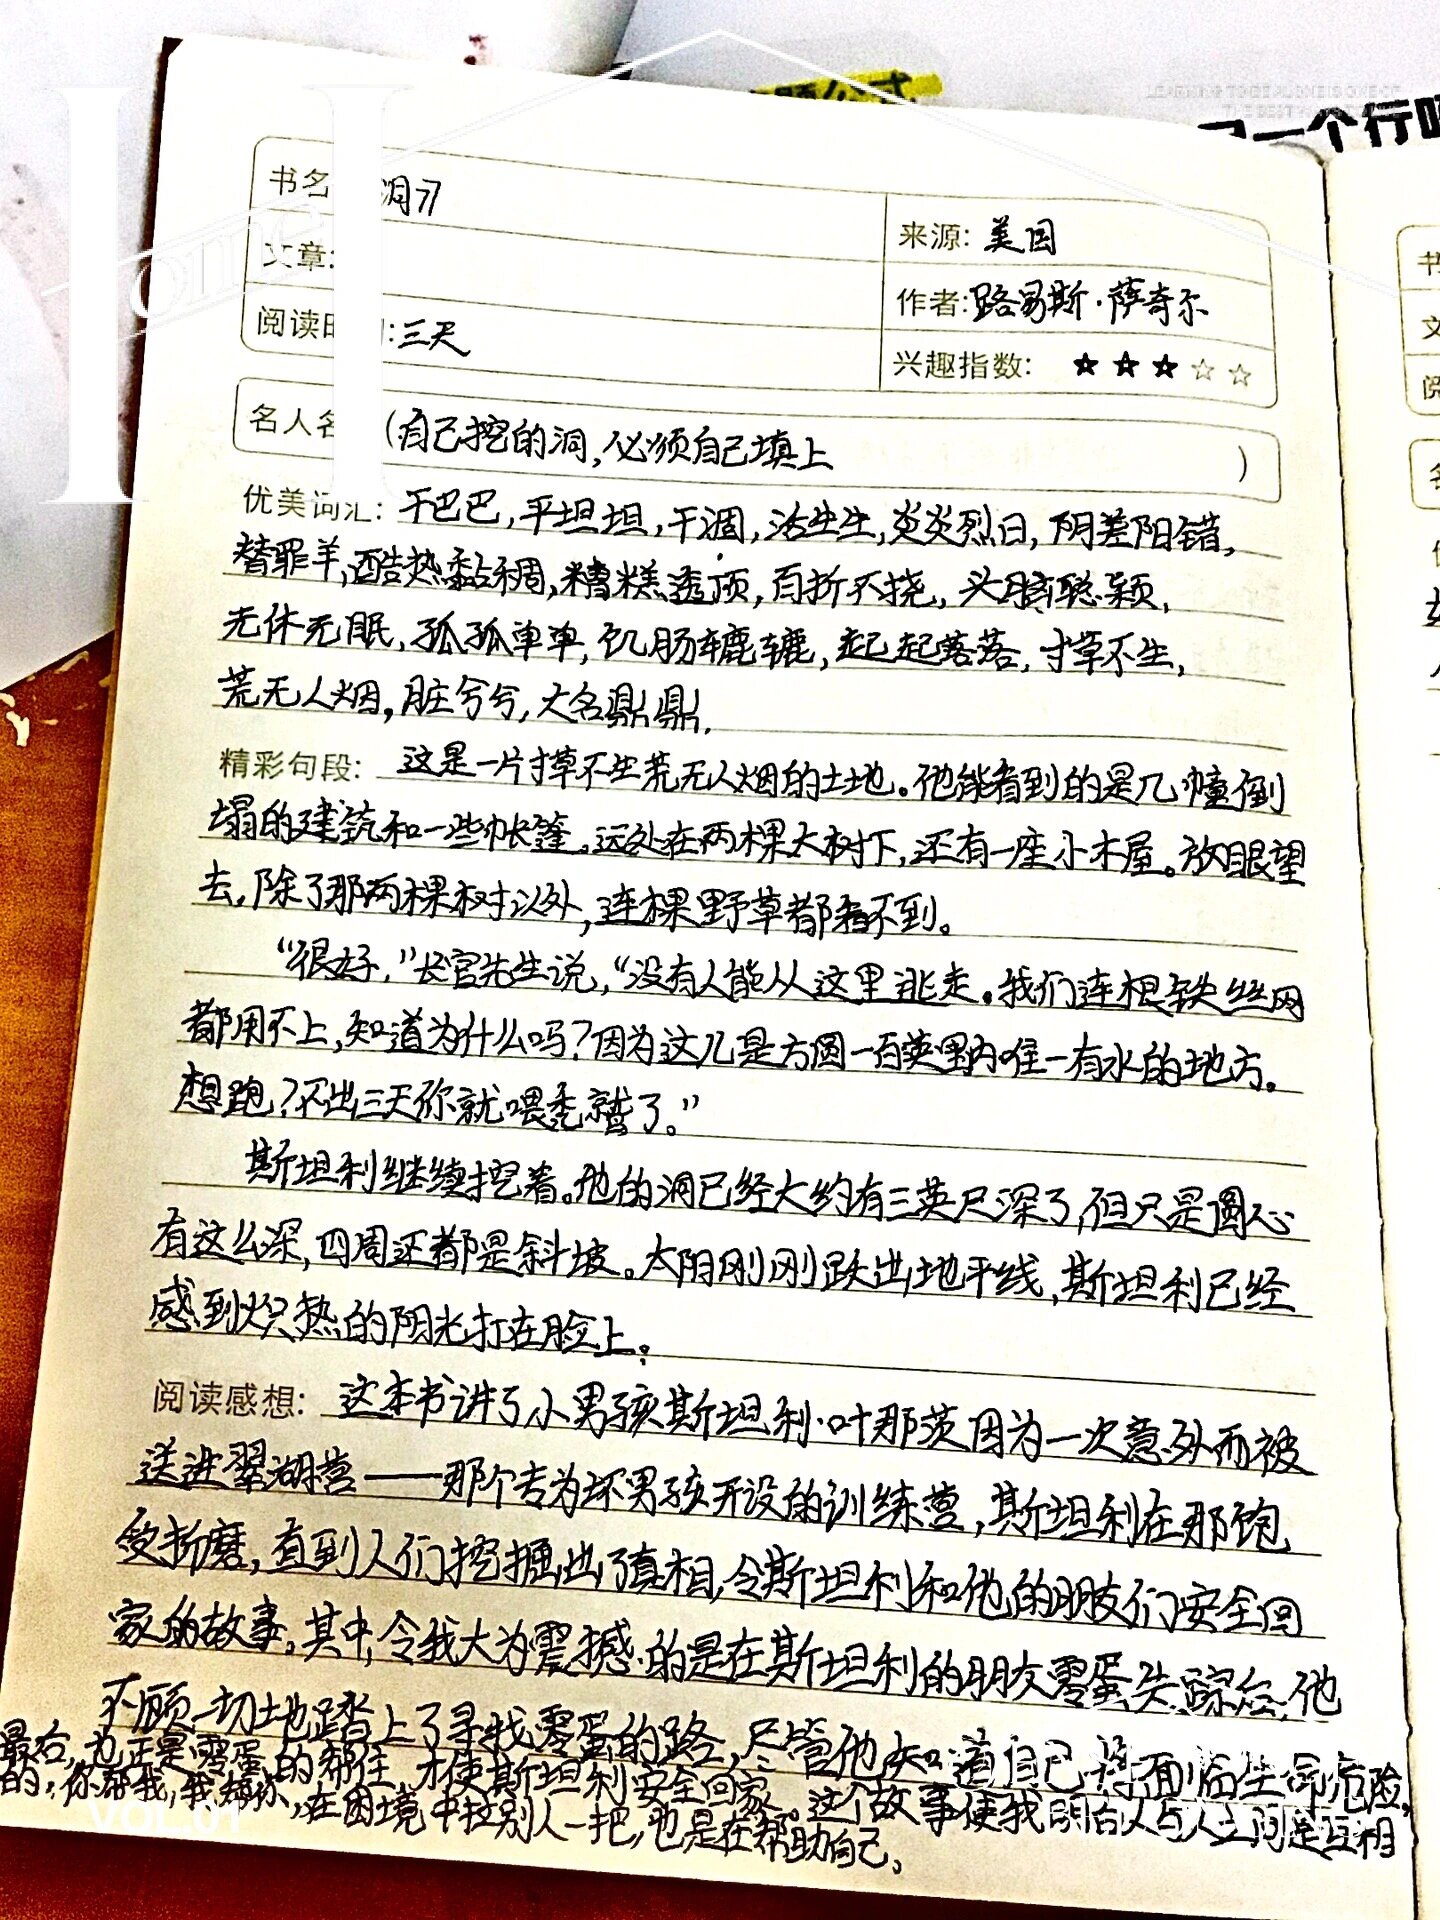 题公式
一个行
LEARNING TO BE ALONE IS ONE OF
THE BEST
Home
书名 洞
来源: 美国
文章:
作者: 路易斯·萨奇尔
阅读时 : 三天
兴趣指数: ★★★☆☆
名人名 (自己挖的洞,必须自己填上 )
优美词汇: 干巴巴,平坦坦,干涸,活生生,炎炎烈日,阴差阳错,
替罪羊,酷热黏稠,糟糕透顶,百折不挠,头脑聪颖,
无休无眠,孤孤单单,饥肠辘辘,起起落落,寸草不生,
荒无人烟,脏兮兮,大名鼎鼎.
精彩句段: 这是一片寸草不生荒无人烟的土地。他能看到的是几幢倒
塌的建筑和一些帐篷。远处在两棵大树下,还有一座小木屋。放眼望
去,除了那两棵树以外,连棵野草都看不到。
“很好,”长官先生说,“没有人能从这里逃走。我们连根铁丝网
都用不上,知道为什么吗?因为这儿是方圆一百英里内唯一有水的地方。
想跑?不出三天你就喂秃鹫了。”
斯坦利继续挖着。他的洞已经大约有三英尺深了,但只是圆心
有这么深,四周还都是斜坡。太阳刚刚跃出地平线,斯坦利已经
感到炽热的阳光打在脸上。
阅读感想: 这本书讲了小男孩斯坦利·叶那茨因为一次意外而被
送进翠湖营——那个专为坏男孩开设的训练营,斯坦利在那饱
受折磨,直到人们挖掘出了真相,令斯坦利和他的朋友们安全回
家的故事。其中,令我大为震撼的是在斯坦利的朋友零蛋失踪后,他
不顾一切地踏上了寻找零蛋的路,尽管他知道自己将面临生命危险,
最后,也正是零蛋的帮住,才使斯坦利安全回家。这个故事使我明白人与人之间是互相
的,你帮我,我帮你,在困境中拉别人一把,也是在帮助自己。
VOL.01